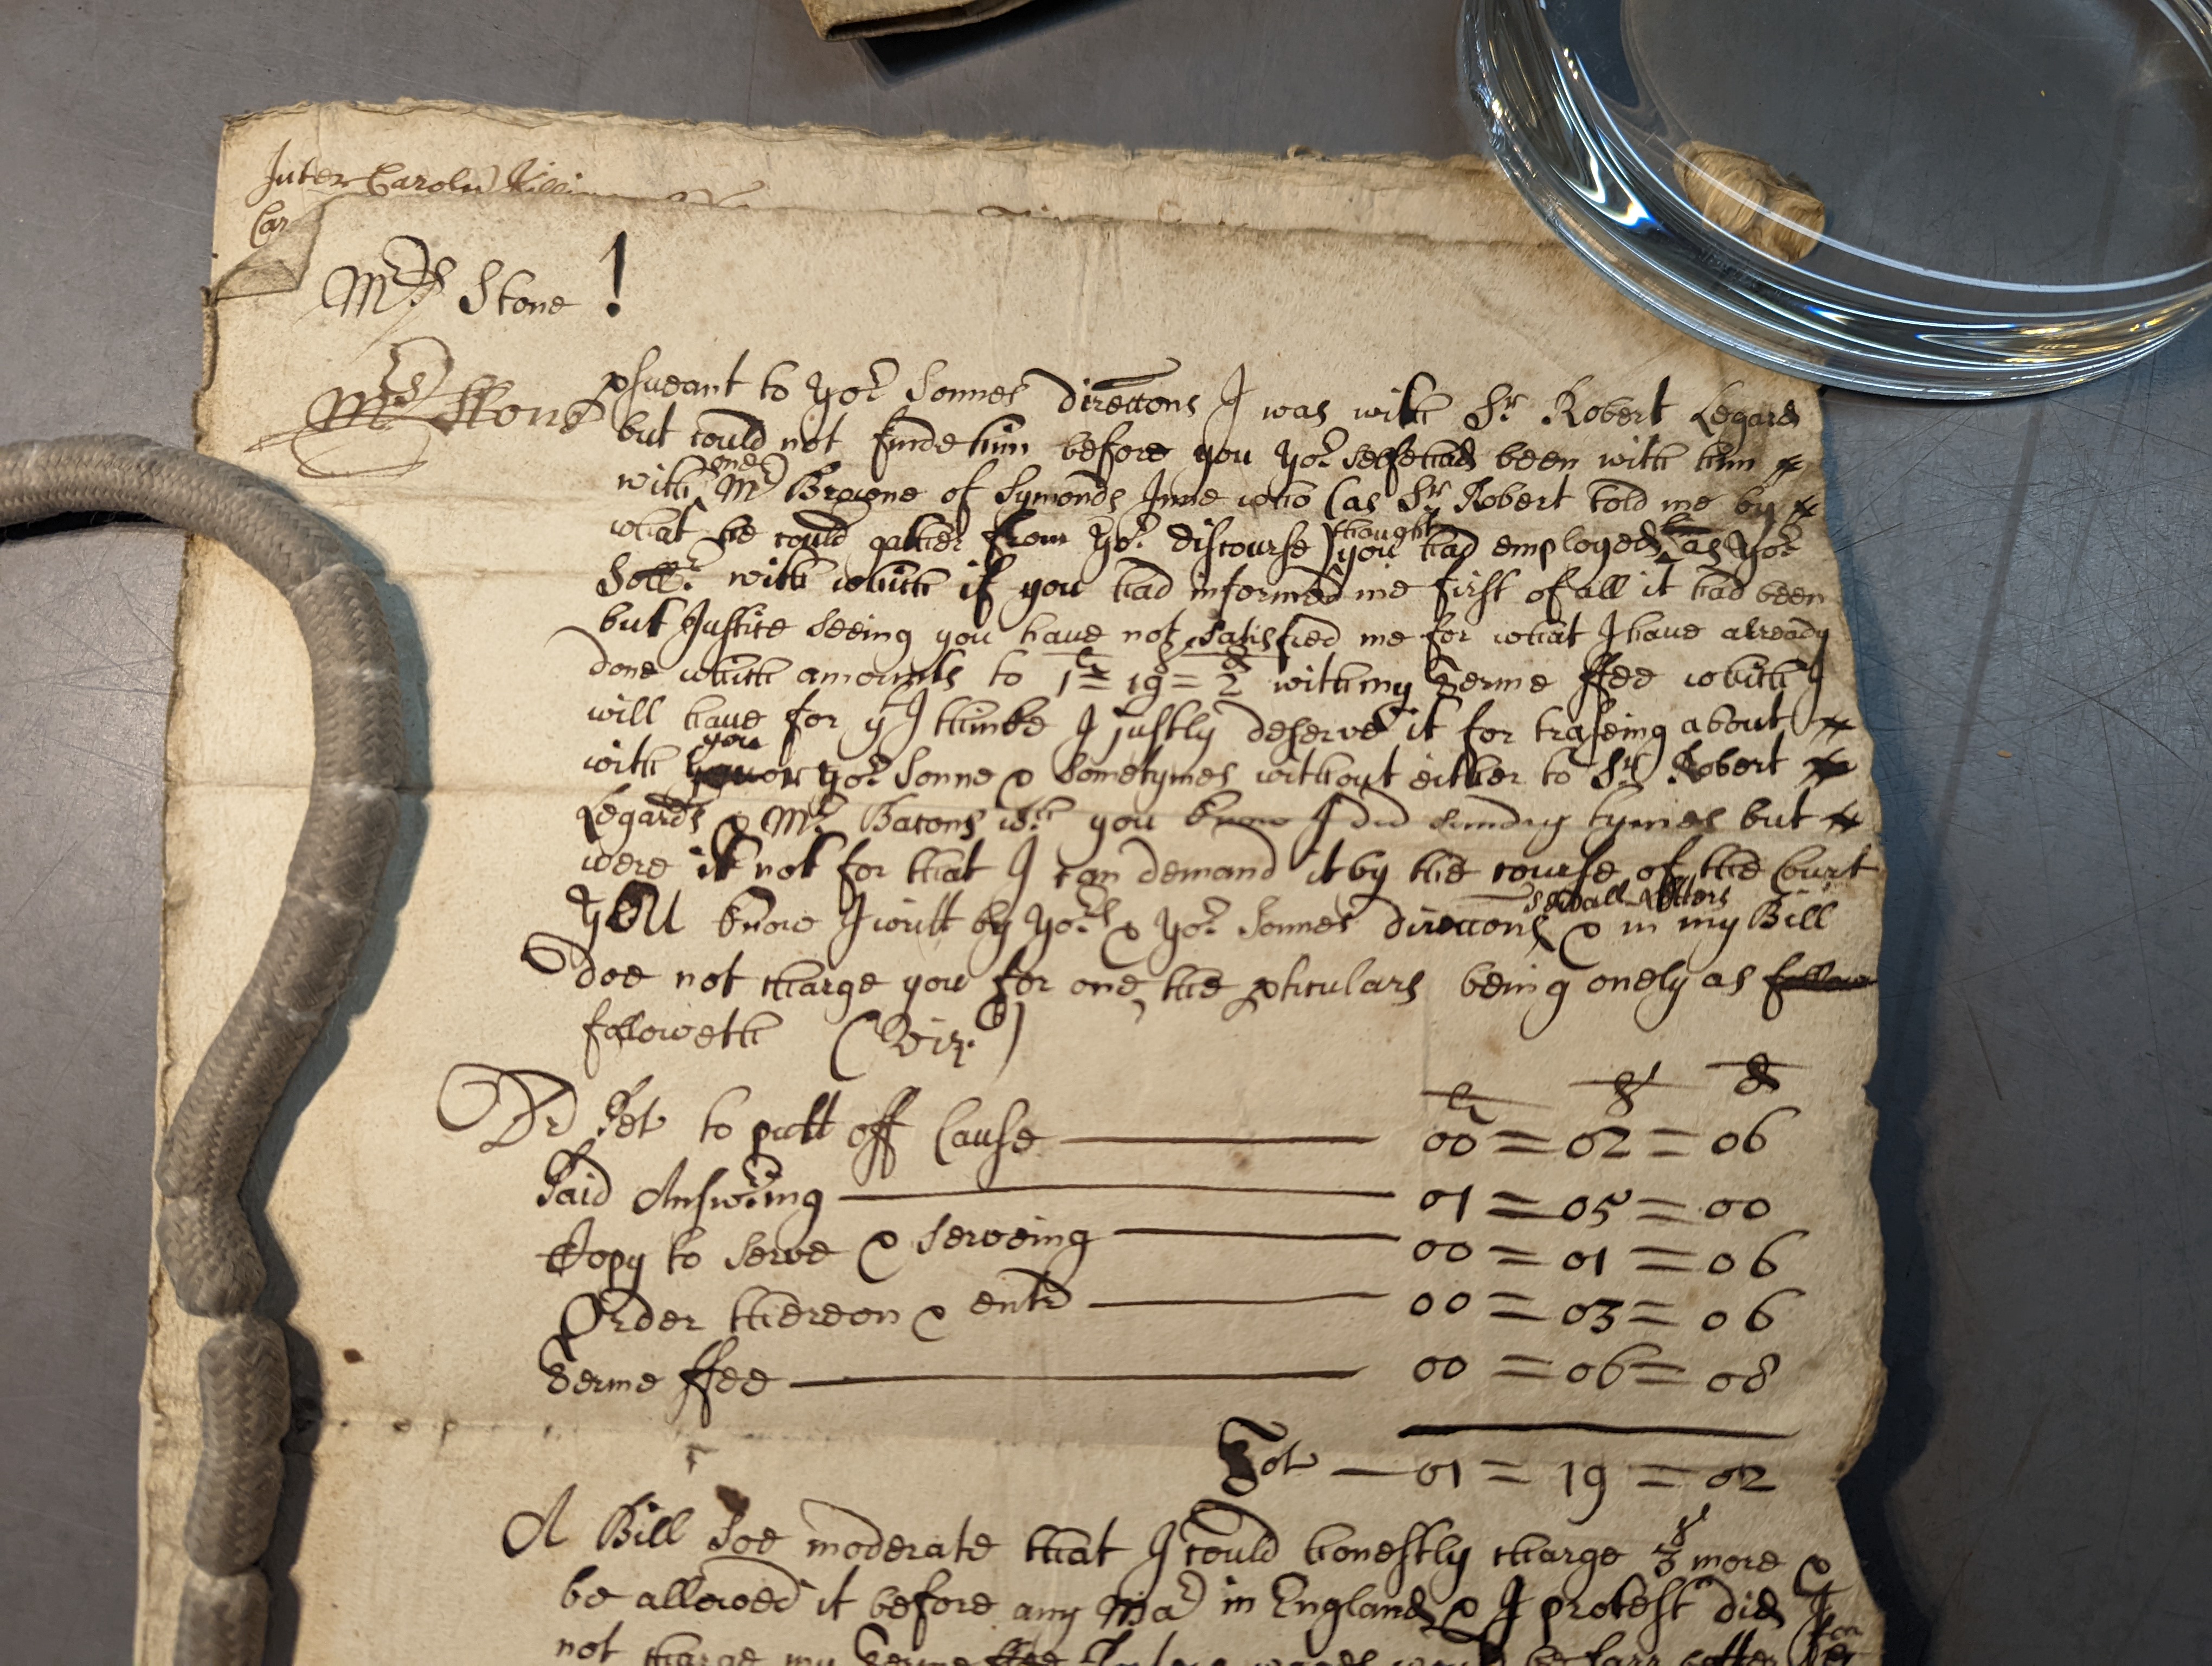 Inter Carolu Killi
Car
Mrs Stone !
Mrs Stone
psueant to yor Sonnes direccons I was with Sr Robert Legard
but could not finde him before you yor selfe had been with him
with one Mr Browne of Symonds Inne who (as Sr Robert told me by
what he could gather from yor discourse) thought you had employed as yor
Sollr with which if you had informed me first of all it had been
but Justice seeing you have not satisfied me for what I have already
done which amounts to 1li = 19s = 2d with my Terme ffee which I
will have for yt I thinke I justly deserve it for traseing about
with you or yor Sonne & sometymes without either to Sr Robert
Legards & Mr Bacons wch you know I did sundry tymes but
were it not for that I can demand it by the course of the Court
YOU know I writt by yors & yor Sonnes direccons severall letters & in my Bill
doe not charge you for one, the pticulars being onely as follow
followeth (Vizt)
li s d
Pd Pet to putt off Cause 00 = 02 = 06
Paid Answring 01 = 05 = 00
Copy to serve & serveing 00 = 01 = 06
Order thereon & entr 00 = 03 = 06
Terme ffee 00 = 06 = 08
Tot — 01 = 19 = 02
A Bill soe moderate that I could honestly charge 3s more &
be allowed it before any Mar in England & I protest did I
not charge my Terme ffee farr better for